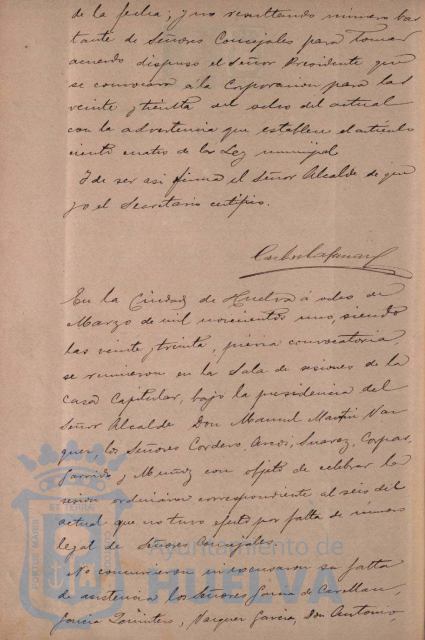 de la fecha; y no resultando número bas
tante de Señores Concejales para tomar
acuerdo dispuso el Señor Presidente que
se convocara á la Corporacion para las
veinte y treinta del ocho del actual
con la advertencia que establece el artículo
ciento cuatro de la Ley municipal.
Y de ser asi firma el Señor Alcalde de que
yo el Secretario certifico.
En la Ciudad de Huelva á ocho de
Marzo de mil novecientos uno, siendo
las veinte y treinta, previa convocatoria,
se reunieron en la Sala de sesiones de la
casa Capitular, bajo la presidencia del
Señor Alcalde Don Manuel Martin Vaz
quez, los Señores Cordero, Suarez, Corpas,
Garrido y Muñoz con objeto de celebrar la
sesión ordinaria correspondiente al seis del
actual que no tuvo efecto por falta de número
legal de Señores Concejales.
No concurrieron ni excusaron su falta
de asistencia los Señores Garcia de
Garcia Vazquez Garcia, Don Antonio,
PORTUS MARIS ET TERRAE
Ayuntamiento de
HUELVA